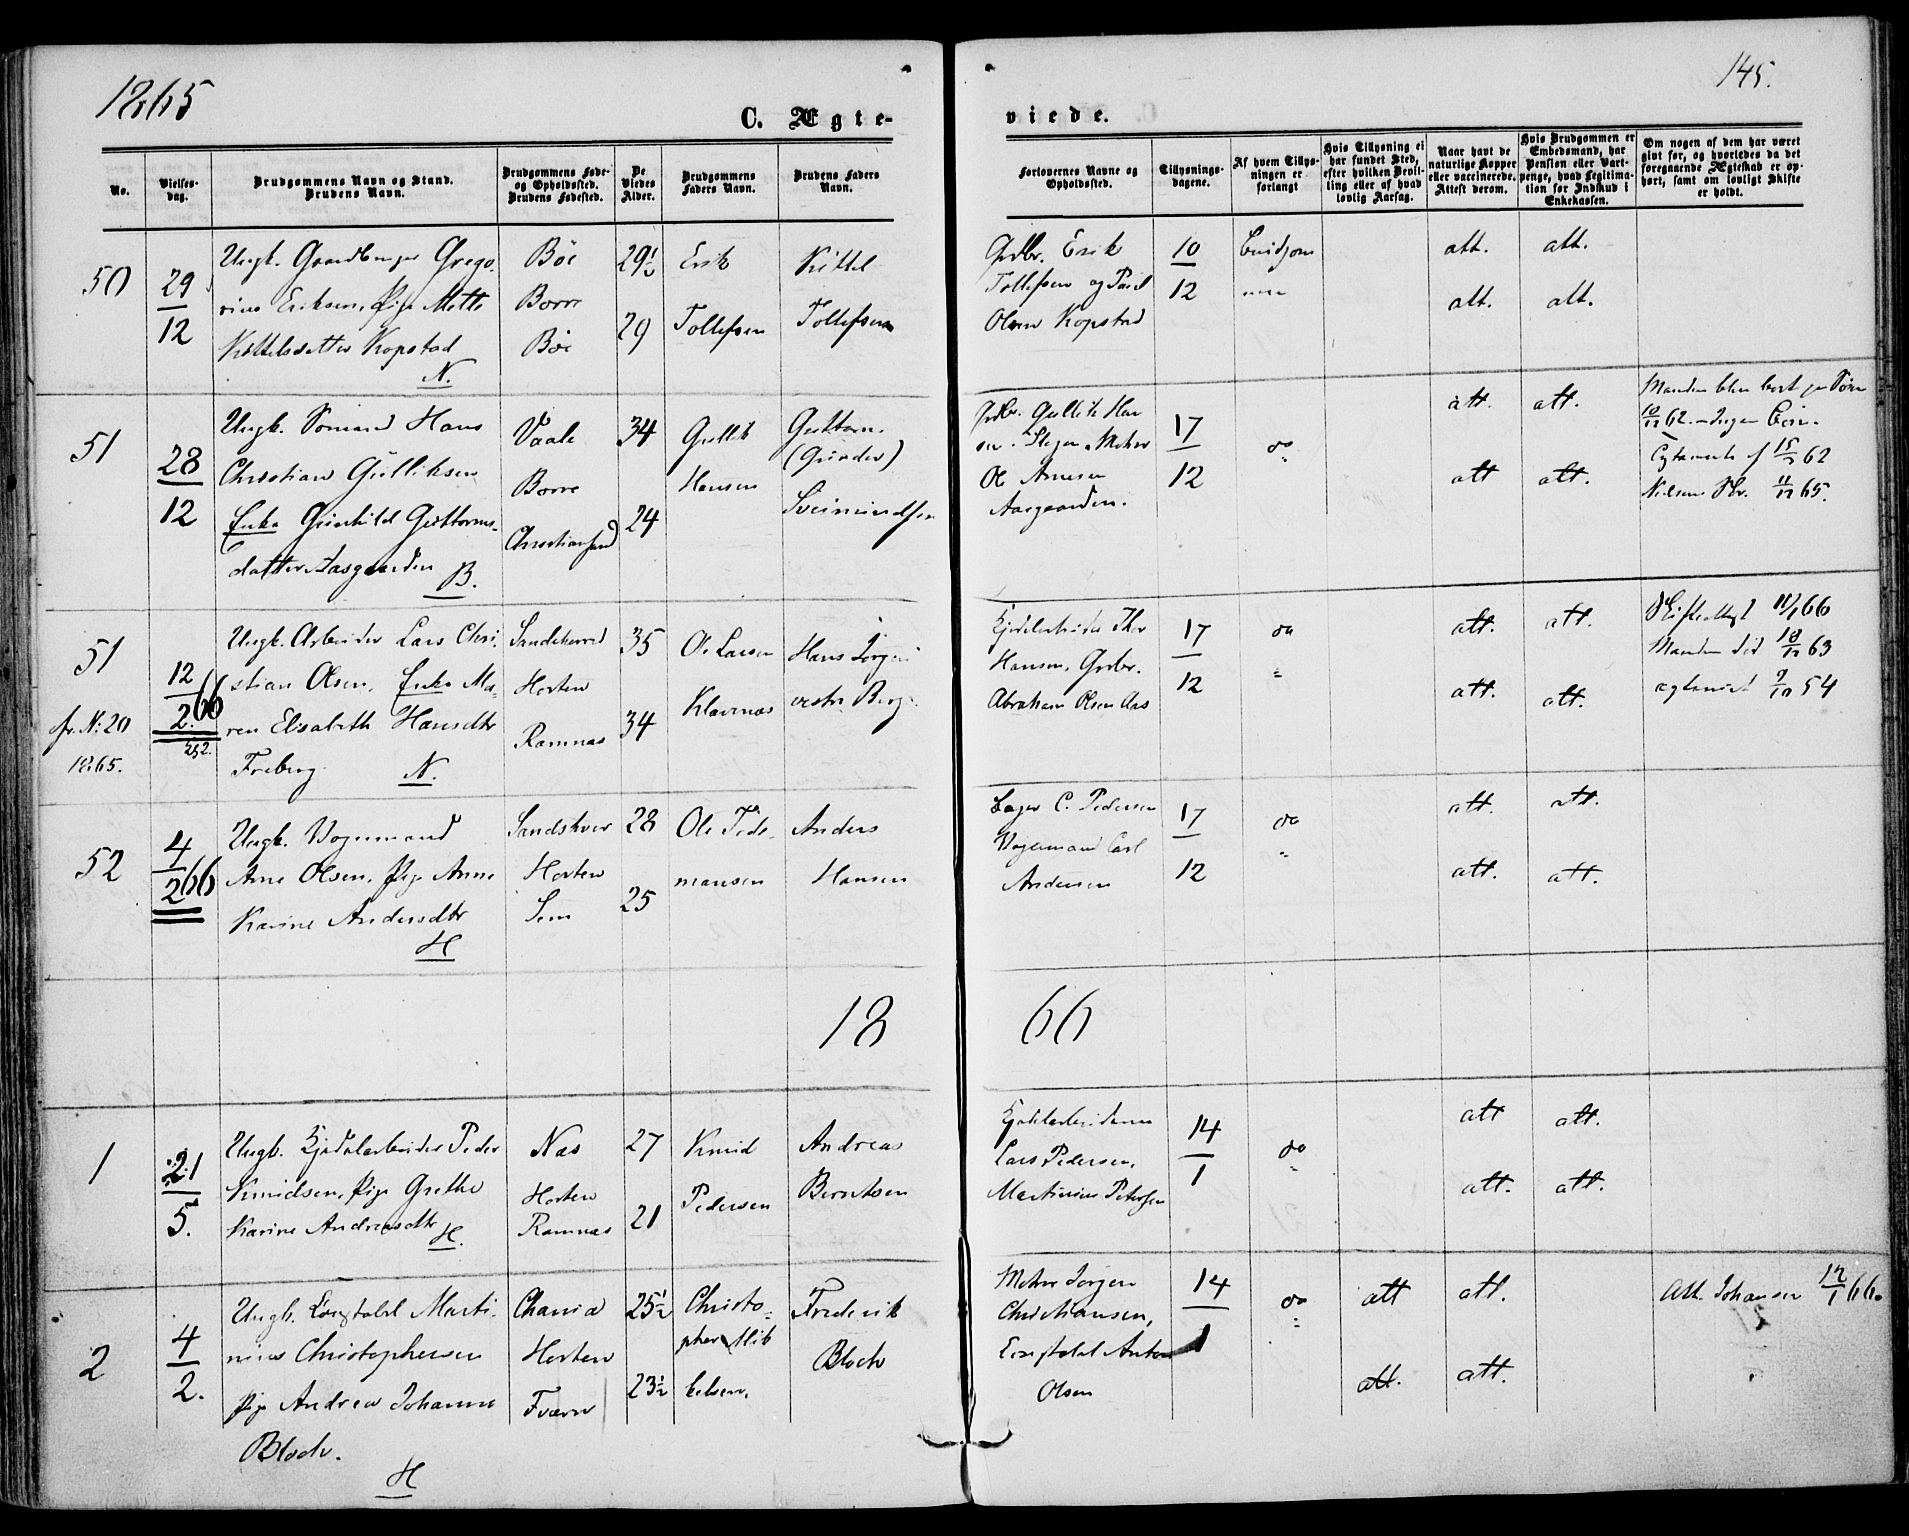 1865
145.
C. Ægte-
viede.
No.
Vielses-
dag.
Brudgommens Navn og Stand.
Brudens Navn.
Brudgommens Føde-
og Opholdssted.
Brudens Fødested.
De
Viedes
Alder.
Brudgommens
Faders Navn.
Brudens Faders
Navn.
Forlovernes Navne og
Opholdssted.
Tillysnings-
dagene.
Af hvem Tillys-
ningen er
forlangt
Hvis Tillysning ei
har fundet Sted,
efter hvilken Bevil-
ling eller af hvad
lovlig Aarsag.
Naar havt de
naturlige Kopper
eller vaccinerede.
Attest derom.
Hvis Brudgommen er
Embedsmand, har
Pension eller Vart-
penge, hvad Legitima-
tion for Indskud i
Enkekassen.
Om nogen af dem har været
gift før, og hvorledes da det
foregaaende Ægteskab er op-
hørt, samt om lovligt Skifte
er holdt.
50
29/12
Ungk. Gaardbruger Grego-
rius Eriksen, Pige Mette
Kittelsdatter Kopstad
N.
Böe
Borre
Böe
29½
29
Erik
Tollefsen
Kittel
Tollefsen
Grdbr. Erik
Tollefsen og Paul
Olsen Kopstad
10/12
att. att.
att. att.
51
28/12
Ungk. Sömand Hans
Christian Gulliksen
Enke Gunhild Guttorms-
datter Aasgaarden
B.
Vaale
Borre
Christiansand
34
24
Gullik
Hansen
Guttorm
(Gunder)
Sveinundsen
Grdbr. Gullik Han
sen
Ol Arnesen
Aasgaarden.
17/12
do
att. att.
att att.
Manden blev bort
10/12 62. Ingen
15/ 62
Nielsen 11/12 65.
51
fr. N: 20
1865.
12/2 66
Ungk. Arbeider Lars Chri-
stian Olsen, Enke Ma-
ren Elisabeth Hansdtr
Freberg
N.
Sandeherred
Horten
Ramnæs
35
34
Ole Larsen
Klavenæs
Hans Jörgen
vestre Berg
Kjedelarbeider Thor
Hansen, Grdbr.
Abraham Olsen Aas
17/12
do
att. att.
att. att.
Skifteattest 11/1 66
Manden död 18/12 63
ægteviet 9/10 54
52
4/2 66
Ungk. Vognmand
Arne Olsen, Pige Anne
Karine Andersdtr
H
Sandshver
Horten
Sem
28
25
Ole Peds-
mansen
Anders
Hansen
Bager C. Pedersen
Vognmand Carl
Andersen
17/12
do
att. att.
att. att.
18 66
1
21/5.
Ungk. Kjedelarbeider Peder
Knudsen, Pige Grethe
Karine Andreasdtr
H.
Næs
Horten
Ramnæs
27
21
Knud
Pedersen
Andreas
Berntsen
Kjedelarbeiderne
Lars Pedersen,
Martinius Petersen
14/1
do
att att.
att. att.
2
4/2.
Ungk. Marti-
nius Christophersen
Pige Andrea Johanne
Bloch.
H
Horten
25½
23½
Christo-
pher Mik
kelsen.
Frederik
Bloch
Jörgen
Christiansen,
Anton
Olsen
14/1
do
att att.
att. att.
Att. Johansen 12/1 66.